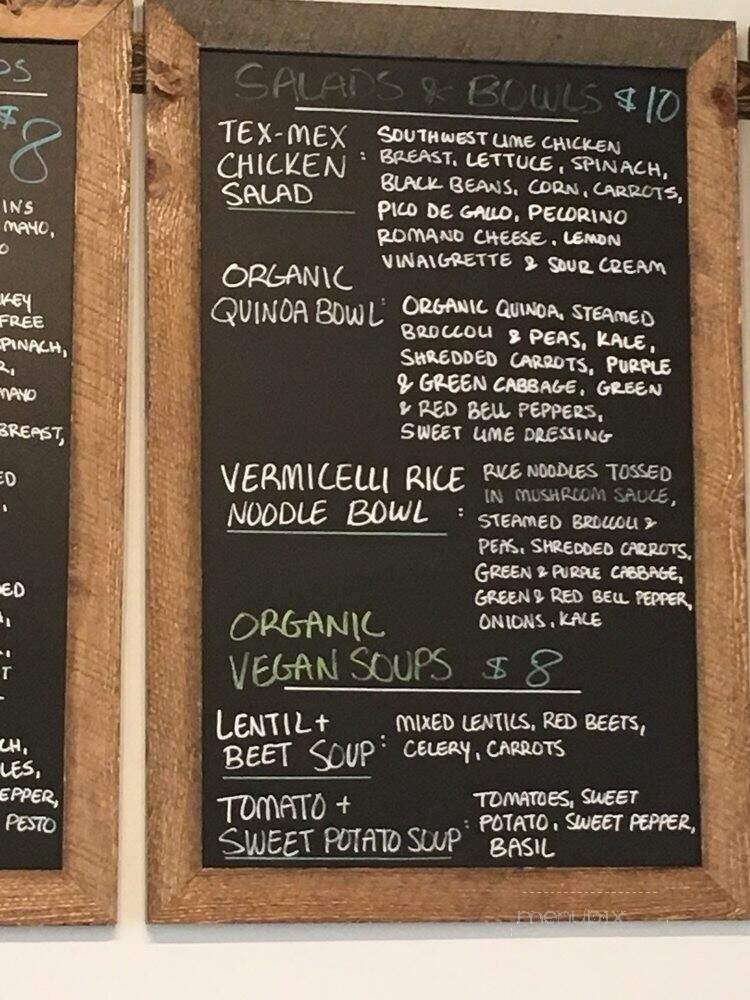 DS
$8
INS
MAYO,
O
KEY
FREE
SPINACH,
R,
MAYO
BREAST,
ED
,
DED
,
T
CH,
LES,
EPPER,
PESTO
SALADS & BOWLS $10
TEX-MEX
CHICKEN :
SALAD
SOUTHWEST LIME CHICKEN
BREAST, LETTUCE, SPINACH,
BLACK BEANS, CORN, CARROTS,
PICO DE GALLO, PECORINO
ROMANO CHEESE, LEMON
VINAIGRETTE & SOUR CREAM
ORGANIC
QUINOA BOWL:
ORGANIC QUINOA, STEAMED
BROCCOLI & PEAS, KALE,
SHREDDED CARROTS, PURPLE
& GREEN CABBAGE, GREEN
& RED BELL PEPPERS,
SWEET LIME DRESSING
VERMICELLI RICE
NOODLE BOWL :
RICE NOODLES TOSSED
IN MUSHROOM SAUCE,
STEAMED BROCCOLI &
PEAS, SHREDDED CARROTS,
GREEN & PURPLE CABBAGE,
GREEN & RED BELL PEPPER,
ONIONS, KALE
ORGANIC
VEGAN SOUPS $8
LENTIL +
BEET SOUP :
MIXED LENTILS, RED BEETS,
CELERY, CARROTS
TOMATO +
SWEET POTATO SOUP :
TOMATOES, SWEET
POTATO, SWEET PEPPER,
BASIL
menupix